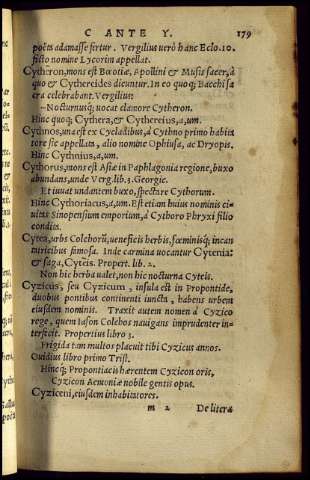 C ANTE Y. 179
poëtę adamasse fertur. Vergilius verò hanc Eclo. 10.
ficto nomine Lycorim appellat.
Cytheron, mons est Bœotiæ, Apollini & Musis sacer, à
quo & Cythereides dicuntur. In eo quoq; Bacchi sa
cra celebrabant. Vergilius:
—Nocturnusq; uocat clamore Cytheron.
Hinc quoq; Cythera, & Cythereius, a, um.
Cythnos, una est ex Cycladibus, à Cythno primo habita
tore sic appellata, alio nomine Ophiusa, ac Dryopis.
Hinc Cythnius, a, um.
Cythorus, mons est Asiæ in Paphlagonia regione, buxo
abundans, unde Verg. lib. 2. Georgic.
Et iuuat undantem buxo, spectare Cythorum.
Hinc Cythoriacus, a, um. Est etiam huius nominis ci
uitas Sinopensium emporium, à Cythoro Phryxi filio
condita.
Cytæa, urbs Colchorũ, ueneficis herbis, fœminisq; incan
tatricibus famosa. Inde carmina uocantur Cyteina:
& saga, Cyteis. Propert. lib. 2.
Non hic herba ualet, non hic nocturna Cyteis.
Cyzicus, seu Cyzicum, insula est in Propontide,
duobus pontibus continenti iuncta, habens urbem
eiusdem nominis. Traxit autem nomen à Cyzico
rege, quem Iason Colchos nauigans imprudenter in-
terfecit. Propertius libro 3.
Frigida tam multos placuit tibi Cyzicus annos.
Ouidius libro primo Trist.
Hincq; Propontiacis hærentem Cyzicon oris,
Cyzicon Aemoniæ nobile gentis opus.
Cyziceni, eiusdem inhabitatores.
m 2 De litera